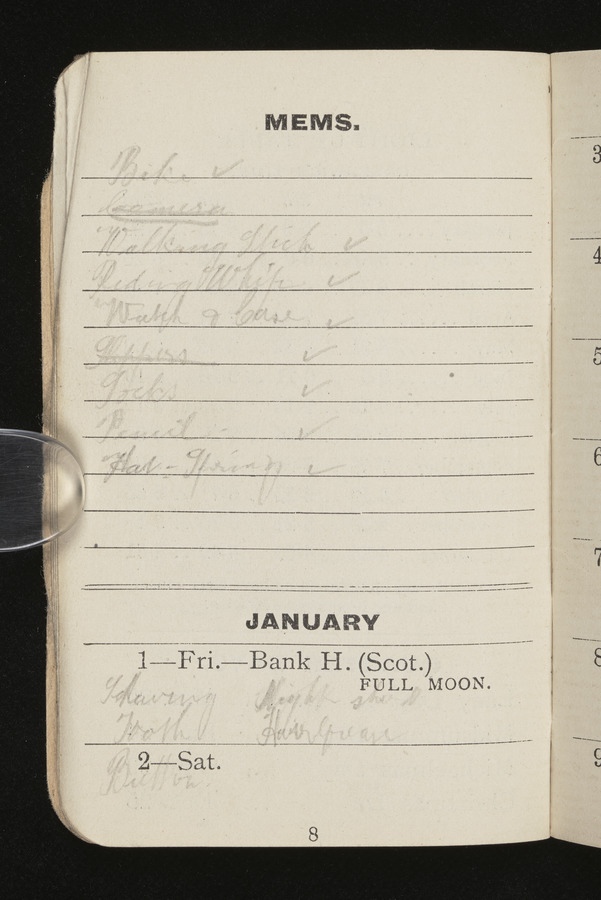 MEMS.
Bike ✓
Camera
Walking Stick ✓
Riding Whip ✓
Watch & Case ✓
Slippers ✓
Socks ✓
Pencil - ✓
Hat - Spring ✓
JANUARY
1—Fri.—Bank H. (Scot.)
FULL MOON.
Shaving Night shirt
Tooth
2—Sat.
Button
8
3
4
5
6
7
8
9